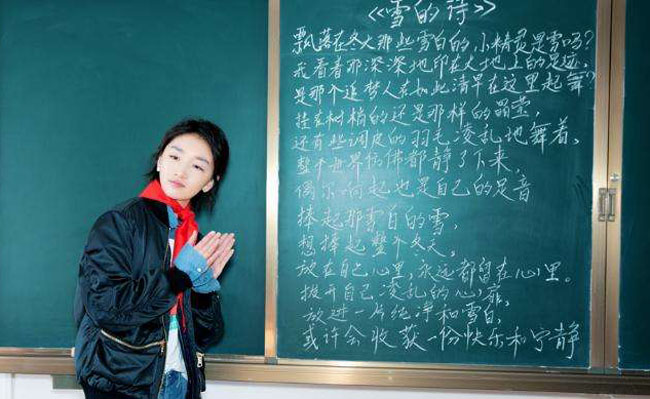 《雪的诗》
飘落在冬天那些雪白的小精灵是雪吗?
我看着那深深地印在大地上的足迹,
是那个追梦人在如此清早在这里起舞?
挂在树梢的还是那样的晶莹,
还有些调皮的羽毛凌乱地舞着,
整个世界仿佛都静了下来,
偶尔响起也是自己的足音
捧起那雪白的雪,
想捧起整个冬天,
放在自己心里,永远都留在心里。
拨开自己凌乱的心扉,
放进一片纯净和雪白,
或许会收获一份快乐和宁静